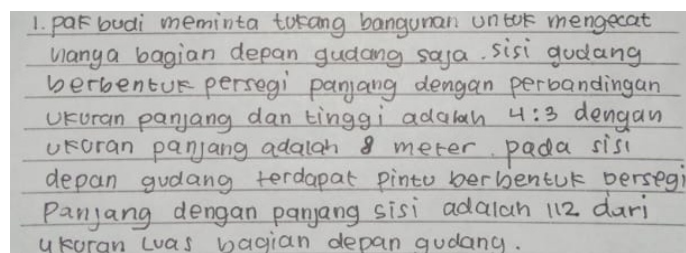 1. pak budi meminta tukang bangunan untuk mengecat
hanya bagian depan gudang saja. sisi gudang
berbentuk persegi panjang dengan perbandingan
ukuran panjang dan tinggi adalah 4:3 dengan
ukuran panjang adalah 8 meter. pada sisi
depan gudang terdapat pintu berbentuk persegi
panjang dengan panjang sisi adalah 112 dari
ukuran luas bagian depan gudang.